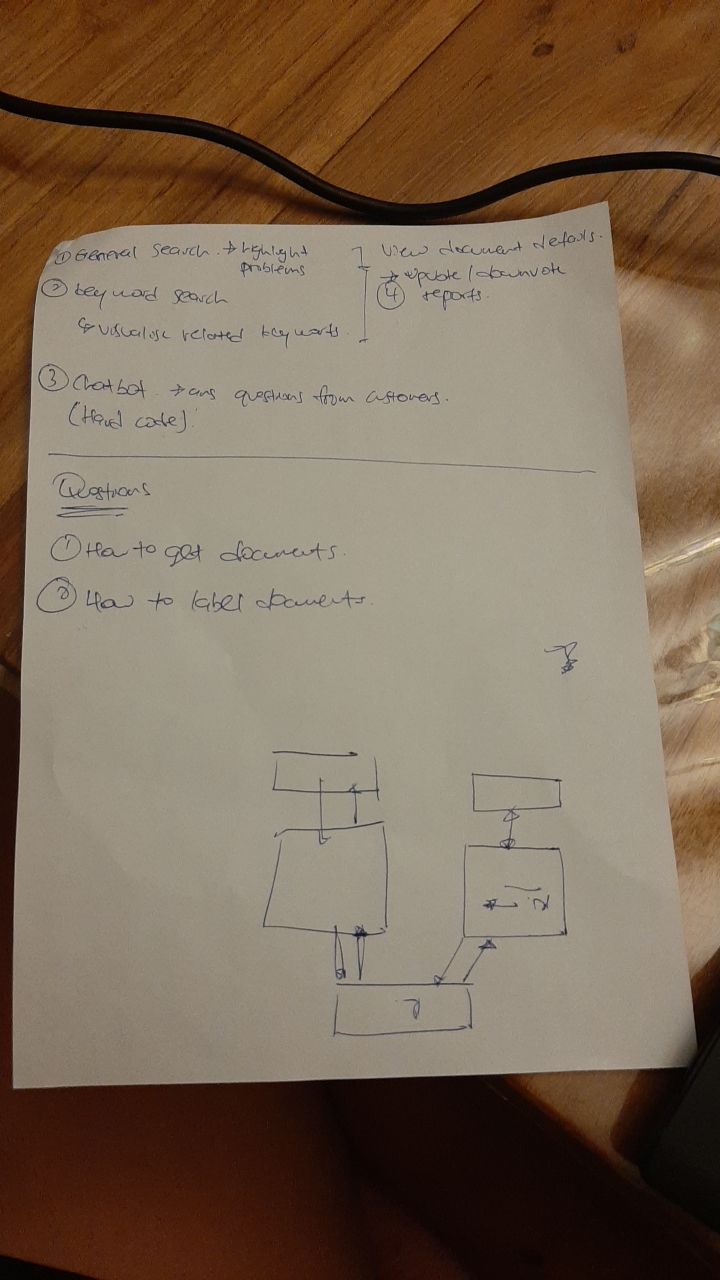 ① General search. → Highlight
problems
② keyword search
↳ visualise related keywords.
View document details.
→ upvote / downvote
④ reports.
③ Chatbot. → ans questions from customers.
(Hard code).
Questions
① How to get documents.
② How to label documents.